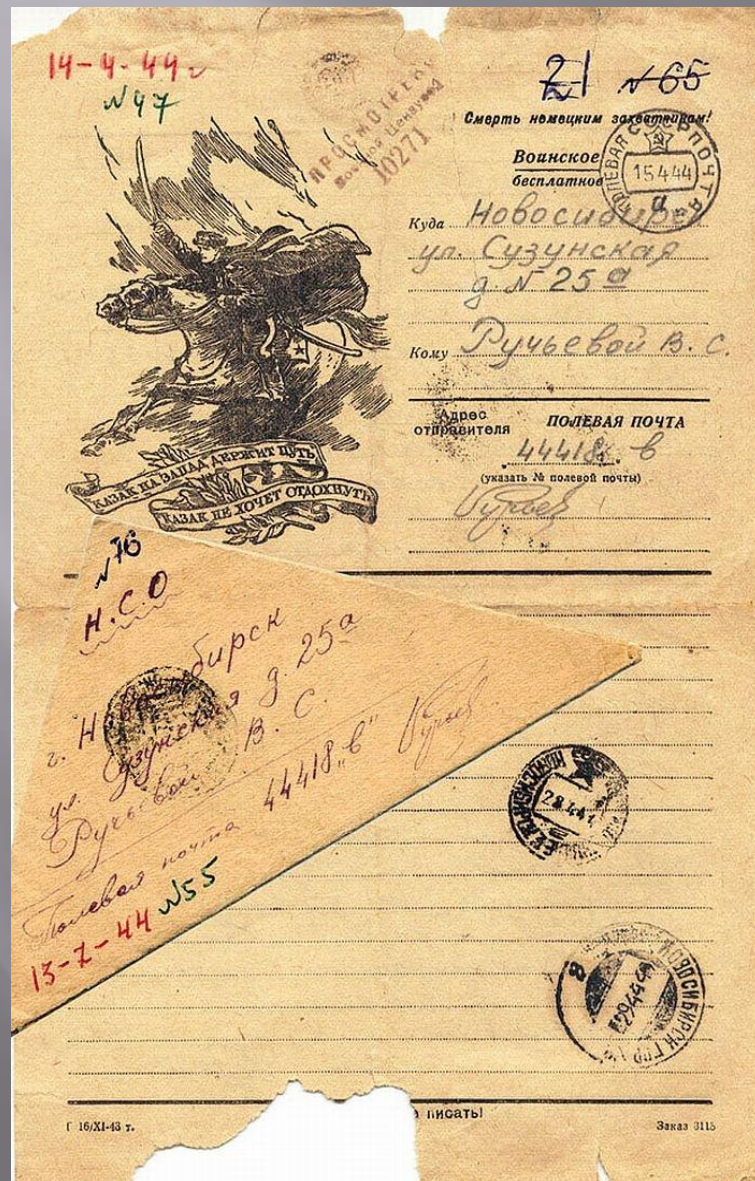 14-4-44г
N47
21 N65
ПРОСМОТРЕНО
Военной Цензурой
10271
Смерть немецким захватчикам!
Воинское
бесплатное
ПОЛЕВАЯ ПОЧТА
15 4 44
а
Куда Новосибирск
ул. Сузунская
д. N 25а
Кому Ручьевой В. С.
Адрес отправителя
ПОЛЕВАЯ ПОЧТА
44418 в
(указать № полевой почты)
КАЗАК НА ЗАПАД ДЕРЖИТ ПУТЬ
КАЗАК НЕ ХОЧЕТ ОТДОХНУТЬ
N76
Н.С.О
г. Новосибирск
ул. Сузунская д. 25а
Ручьевой В. С.
Полевая почта 44418 „в"
13-7-44 N55
НОВОСИБИРСК
писать!
Г 16/XI-43 г.
Заказ 3115